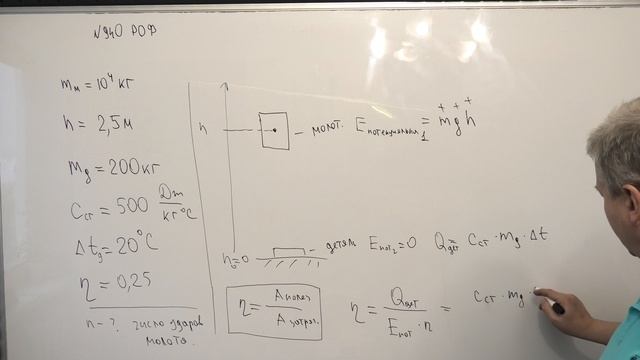 N940 РОФ
mм = 10⁴ кг
h = 2,5 м
mд = 200 кг
Cст = 500 Дж/кг°С
Δtд = 20°C
η = 0,25
n - ? число ударов
молота.
h
– молот. Eпотенциальн1 = mgh
+ + +
h₀=0
– деталь Eпот₂ = 0 Qдет = Cст · mд · Δt
η = Aполез / Aзатрач.
η = Qдет / Eпот · n = Cст · mд ·